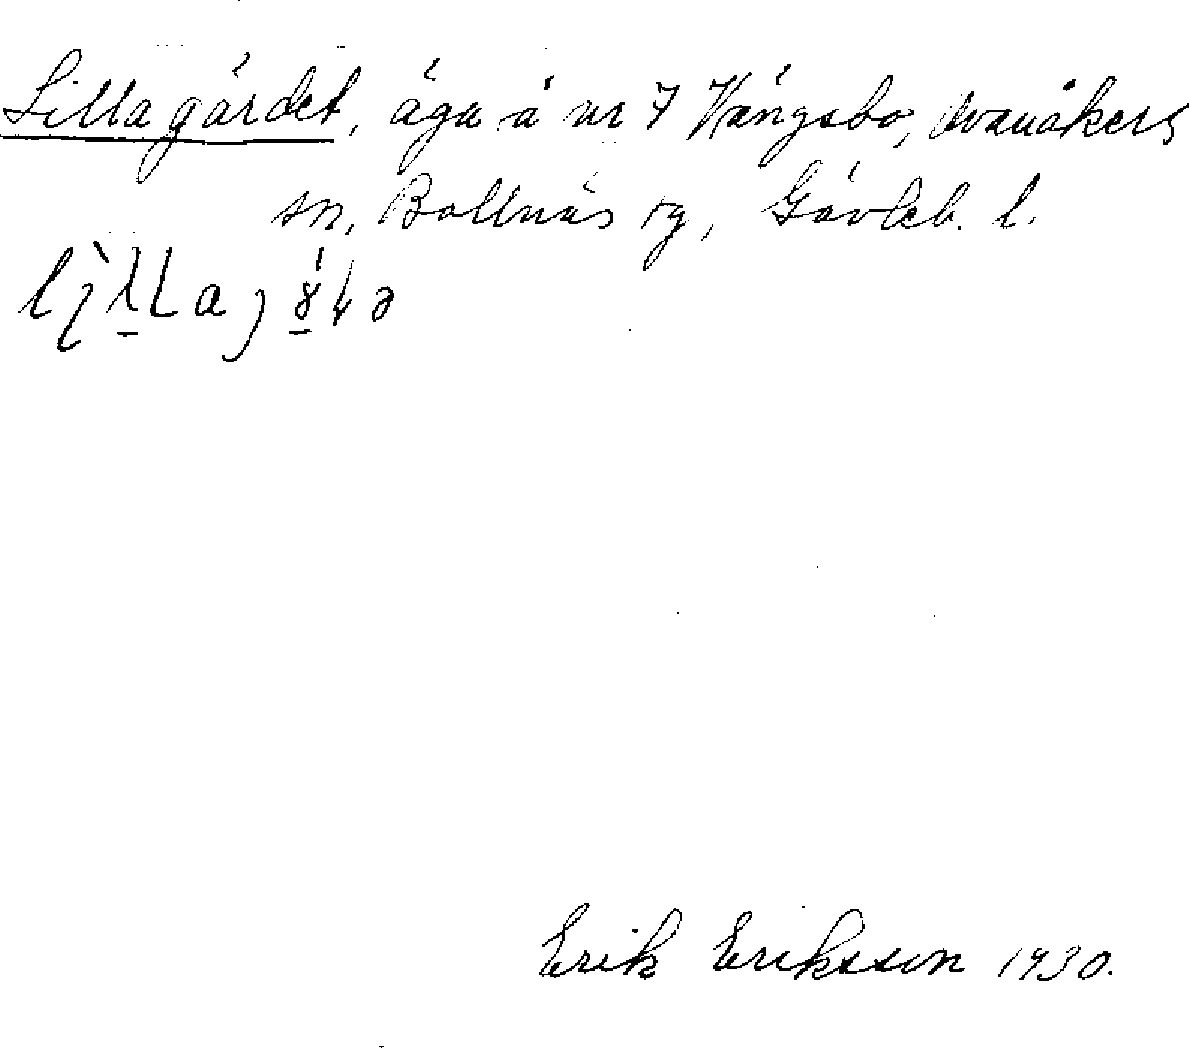 Lilla gärdet, äga å nr 7 Vängsbo, Ovanåkers
sn, Bollnäs tg, Gävleb. l.
Erik Eriksson 1930.